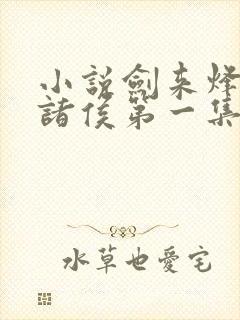 小說劍来烽
諸侯第一集
水草也愛宅